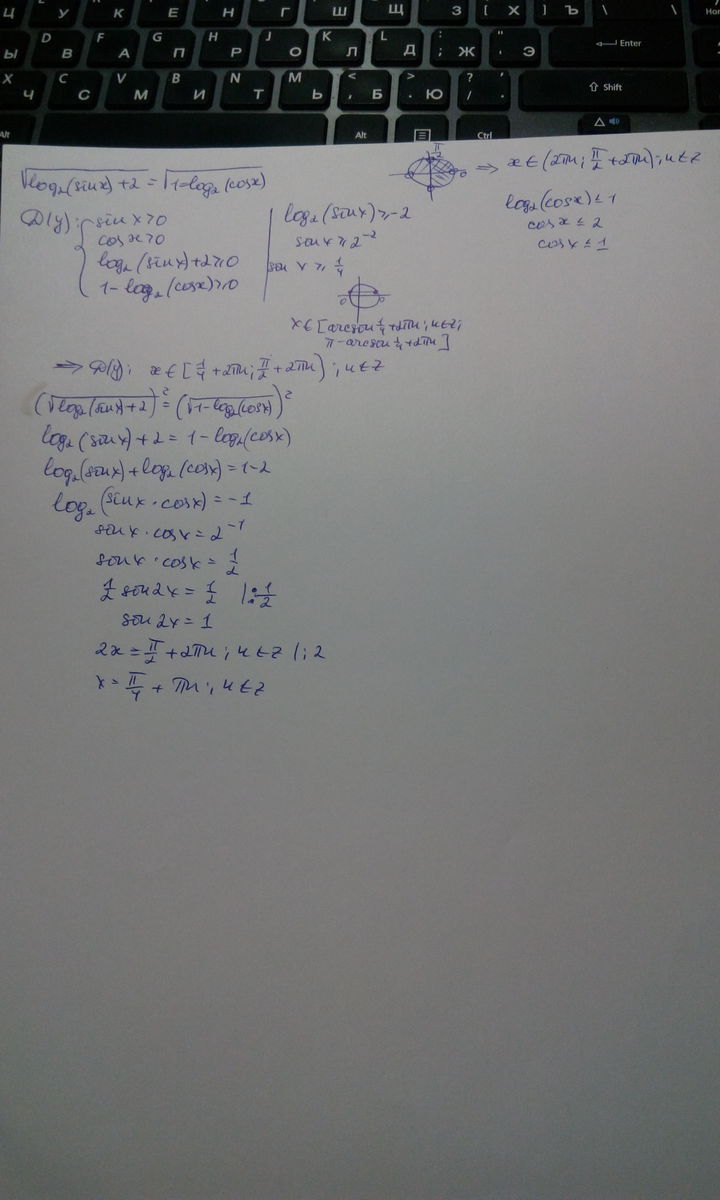 Ц У К Е Н Г Ш Щ З [ Х ] Ъ \ \
Ы D В F А G П H Р J О K Л L Д : ; Ж " ' Э Enter
X Ч C С V М B И N Т M Ь < , Б > . Ю ? / . Shift
Alt Alt Ctrl
√(log₂(sinx)+2) = √(1-log₂(cosx))
π/2
⇒ x∈(2πn; π/2+2πn); n∈Z
D(y): { sin x>0
cos x>0
log₂(sinx)+2≥0
1-log₂(cosx)≥0
log₂(sinx)≥-2
sinx≥2⁻²
sin x≥1/4
0 0
x∈[arcsin 1/4+2πn; n∈Z;
π-arcsin 1/4+2πn]
log₂(cosx)≤1
cosx≤2
cosx≤1
⇒ D(y): x∈[1/4+2πn; π/2+2πn); n∈Z
(√(log₂(sinx)+2))²=(√(1-log₂(cosx)))²
log₂(sinx)+2=1-log₂(cosx)
log₂(sinx)+log₂(cosx)=1-2
log₂(sinx·cosx)=-1
sinx·cosx=2⁻¹
sinx·cosx=1/2
1/2 sin2x=1/2 |:1/2
sin2x=1
2x=π/2+2πn; n∈Z |:2
x=π/4+πn; n∈Z